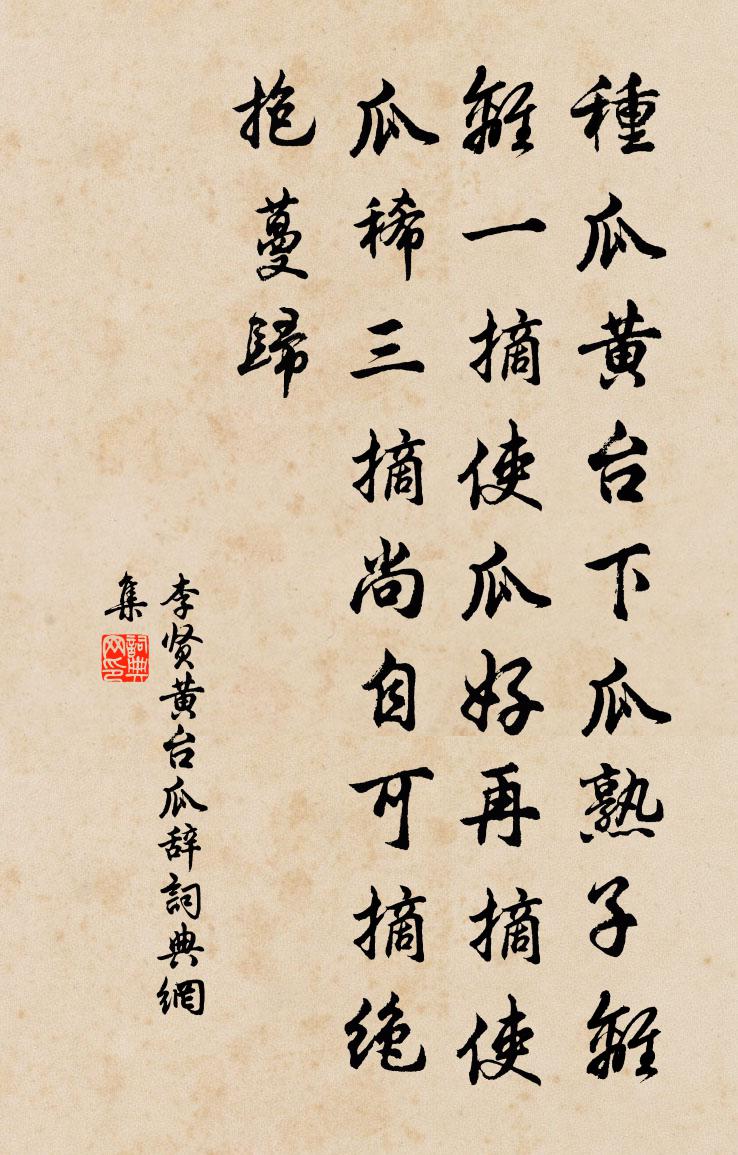 種瓜黄台下瓜熟子離
離一摘使瓜好再摘使
瓜稀三摘尚自可摘绝
抱蔓歸
李贤黄台瓜辞詞典網
集
詞典
网印